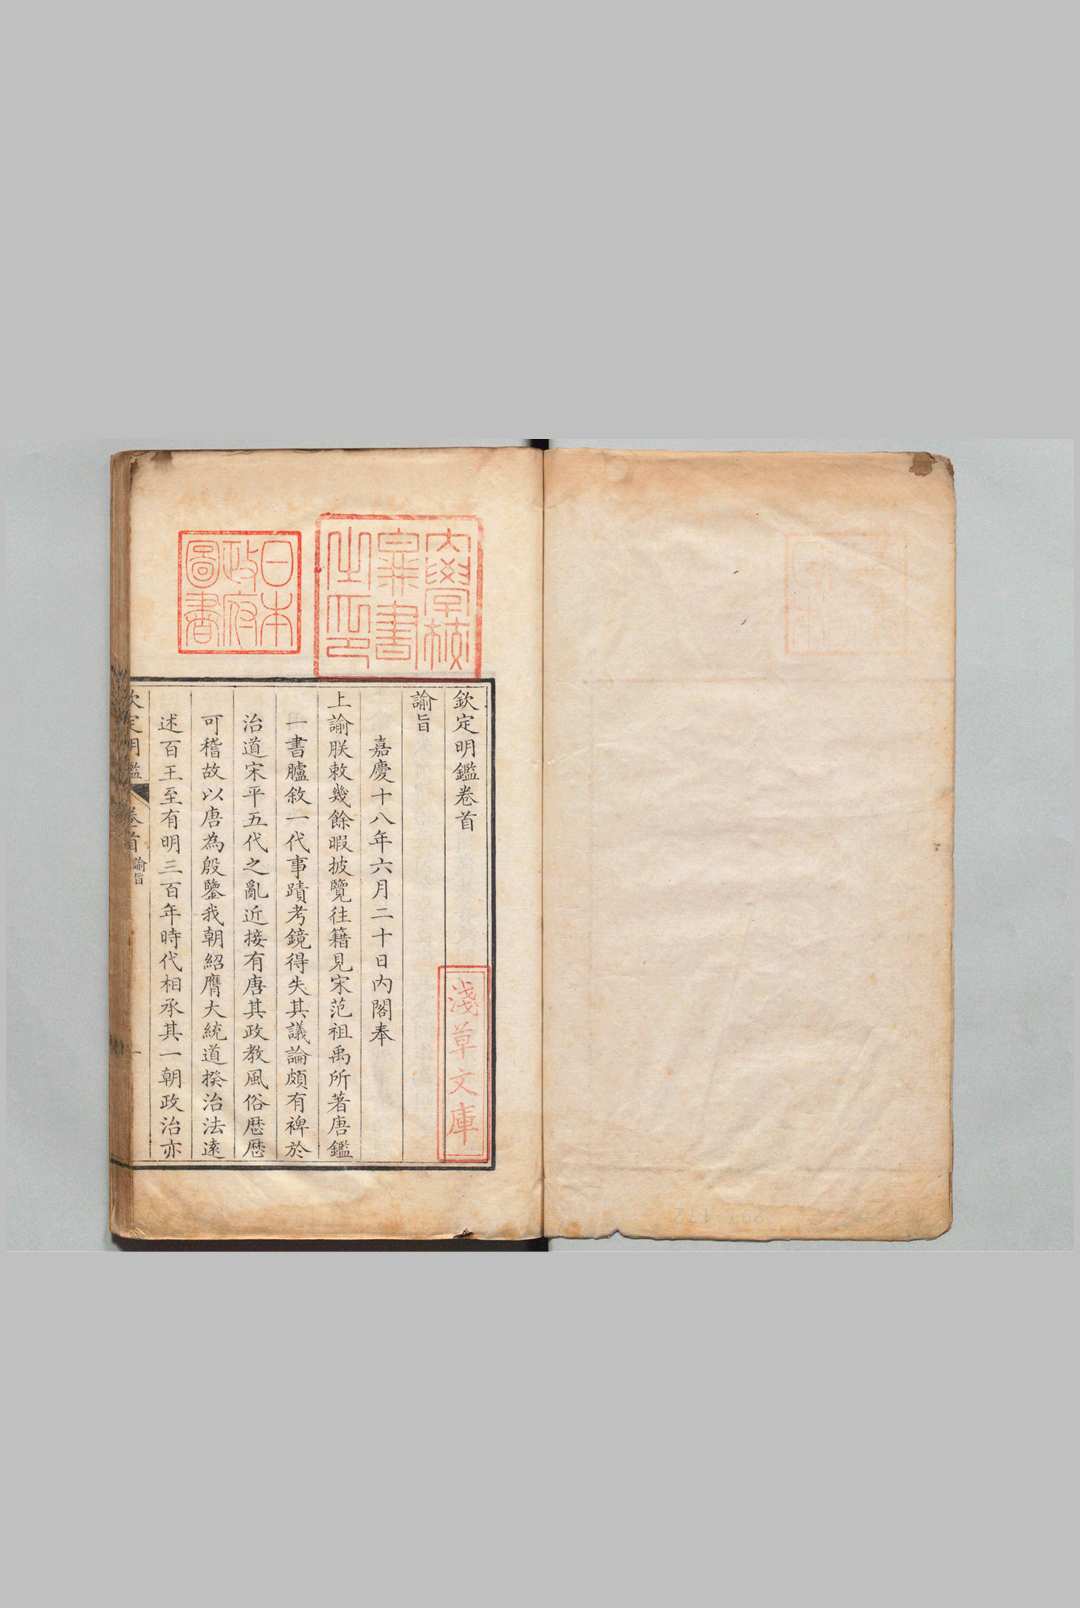 欽定明鑑卷首
諭旨
嘉慶十八年六月二十日內閣奉
上諭朕敕幾餘暇披覽往籍見宋范祖禹所著唐鑑
一書臚敘一代事蹟考鏡得失其議論頗有裨於
治道宋平五代之亂近接有唐其政教風俗歷歷
可稽故以唐為殷鑒我朝紹膺大統道揆治法遠
述百王至有明三百年時代相承其一朝政治亦
欽定明鑑 卷首 諭旨 一
日本政府圖書
淺草文庫